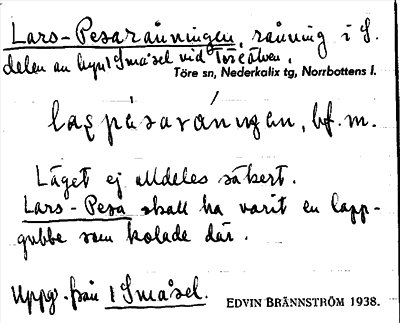 Lars-Pesarånningen, rånning i S.
delen av byn 1 Småsel vid Töreälven.
Töre sn, Nederkalix tg, Norrbottens l.
laspásaråningen, bf. m.
Läget ej alldeles säkert.
Lars-Pesa skall ha varit en lapp-
gubbe som kolade där.
Uppg. från 1 Småsel.
EDVIN BRÄNNSTRÖM 1938.